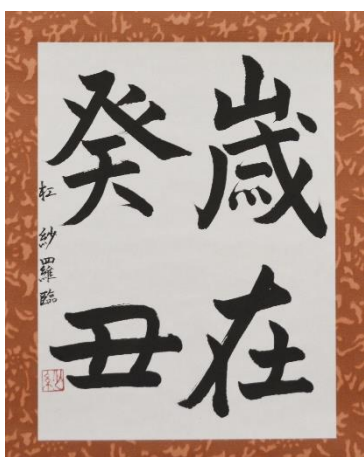 歳在
癸丑
杠 紗羅臨